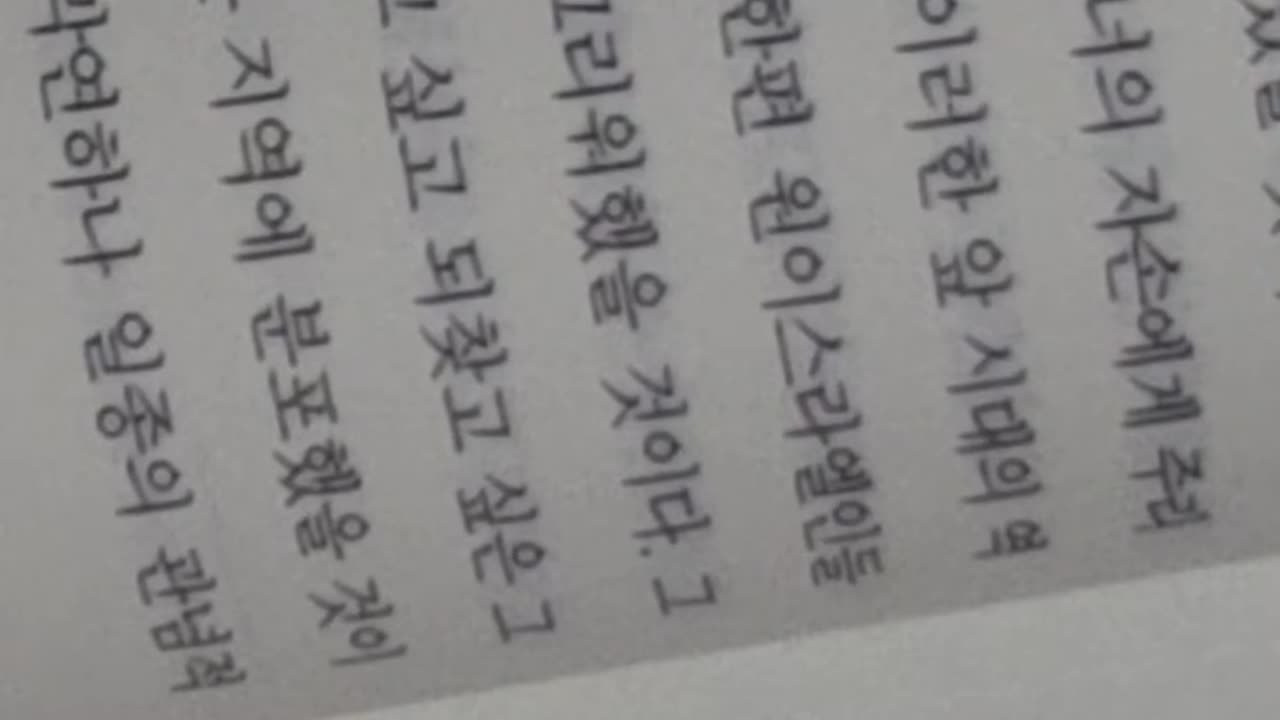 너의 자손에게 주리
이러한 앞 시대의 역
한편 원이스라엘인들
그리워했을 것이다. 그
싶고 되찾고 싶은 그
지역에 분포했을 것이
막연하나 일종의 관념적